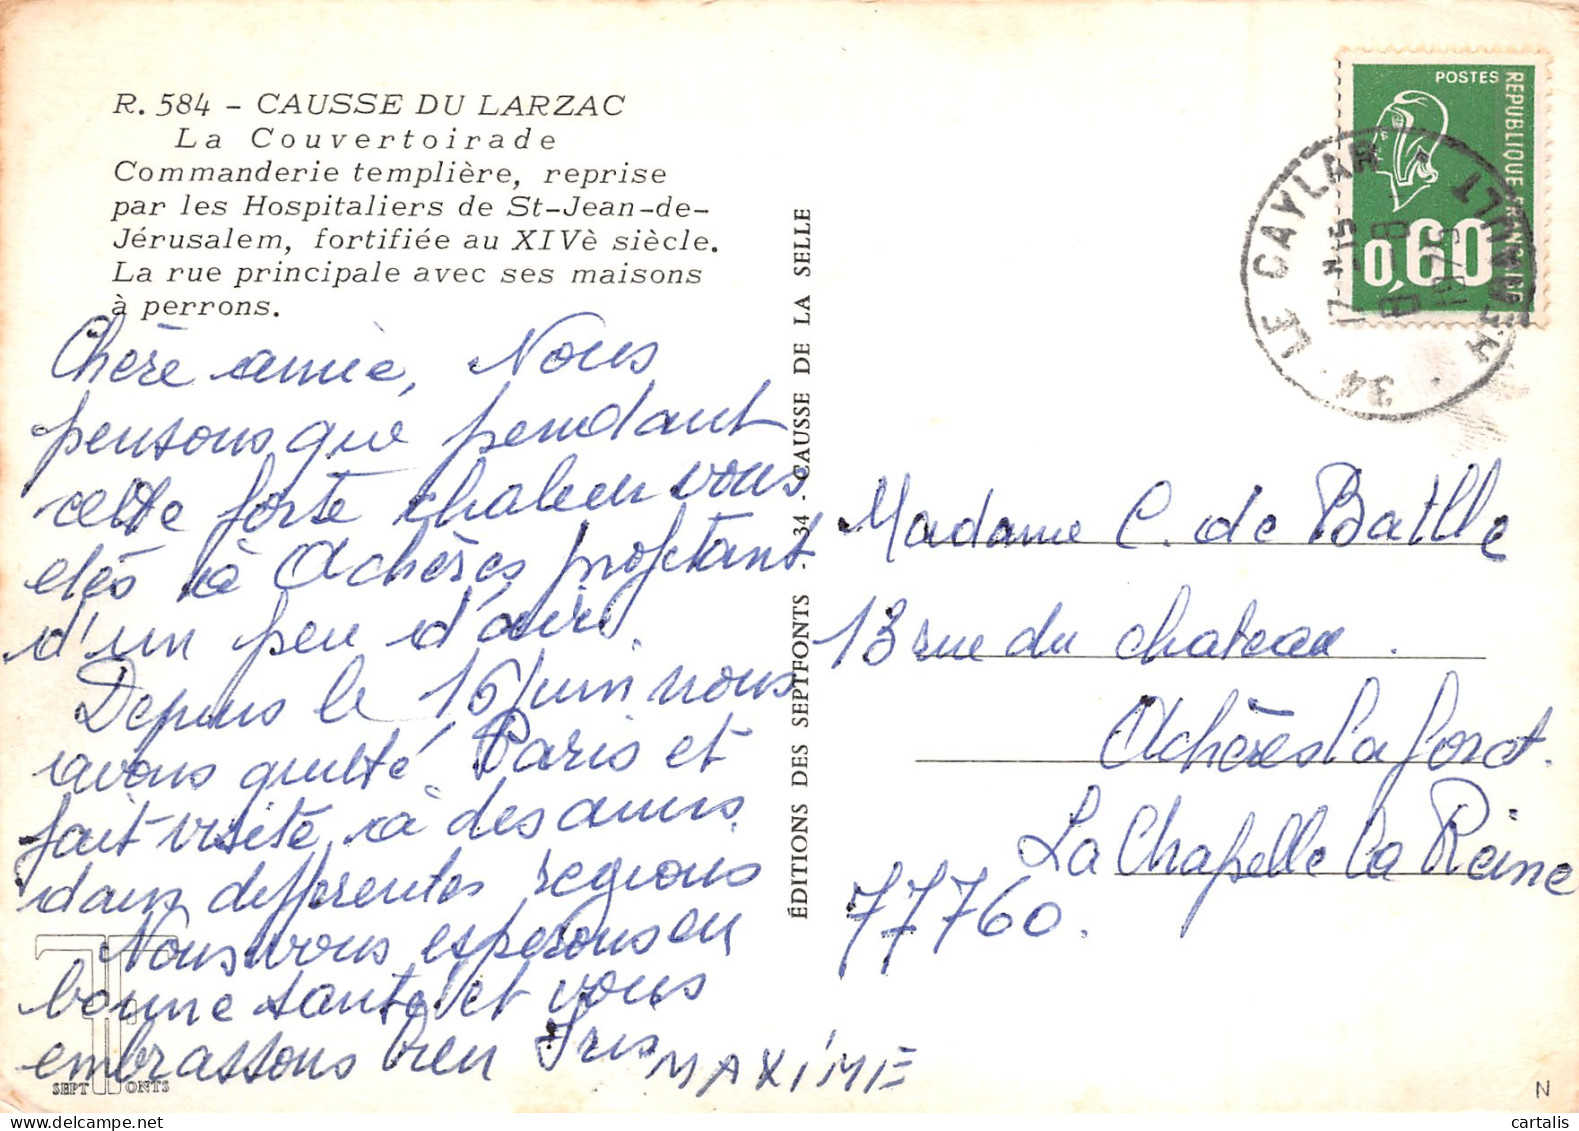 R. 584 - CAUSSE DU LARZAC
La Couvertoirade
Commanderie templière, reprise
par les Hospitaliers de St-Jean-de-
Jérusalem, fortifiée au XIVè siècle.
La rue principale avec ses maisons
à perrons.
Chère amie, Nous
pensons que pendant
cette forte chaleur vous
etes à Achères profetant
d'un peu d'air.
Depuis le 16 juin nous
avons quitté Paris et
fait visite à des amis
dans differentes regions
Nous vous esperons en
bonne santé et vous
embrassons bien Iris
MAXIME
SEPT FONTS
ÉDITIONS DES SEPTFONTS. 34. CAUSSE DE LA SELLE
POSTES
REPUBLIQUE FRANÇAISE
0,60
34 LE CAYLAR HERAULT
17 H 15
8 - 8
1976
Madame C. de Batlle
13 rue du chateau.
Achères la foret.
La Chapelle la Reine
77760.
N
cartalis